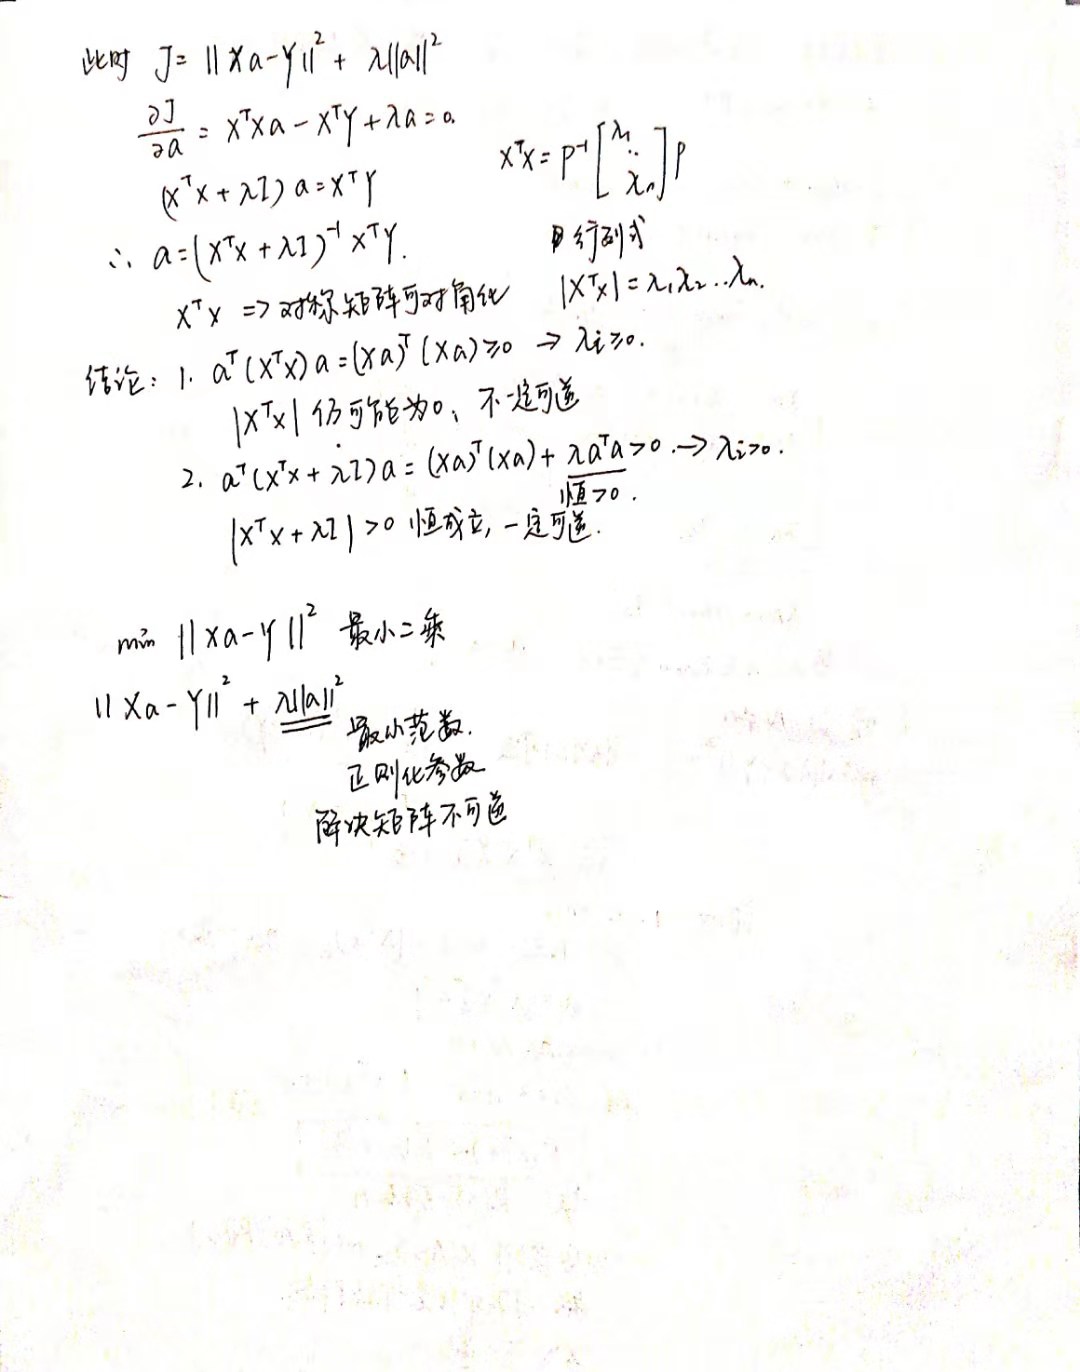 此时 J= ||Xa-Y||² + λ||a||²
∂J/∂a = XᵀXa - XᵀY + λa = 0.
XᵀX = P⁻¹[λ₁ ⋱ λₙ]P
(XᵀX + λI) a = XᵀY
∴ a = (XᵀX + λI)⁻¹ XᵀY.
行列式
XᵀX => 对称矩阵可对角化
|XᵀX| = λ₁λ₂…λₙ.
结论: 1. aᵀ(XᵀX)a = (Xa)ᵀ(Xa) ≥0 → λi≥0.
|XᵀX| 仍可能为0, 不一定可逆
2. aᵀ(XᵀX + λI)a = (Xa)ᵀ(Xa) + λaᵀa >0 → λi>0.
恒>0.
|XᵀX + λI| >0 恒成立, 一定可逆.
min ||Xa-Y||² 最小二乘
||Xa-Y||² + λ||a||²
最小范数.
正则化参数
解决矩阵不可逆